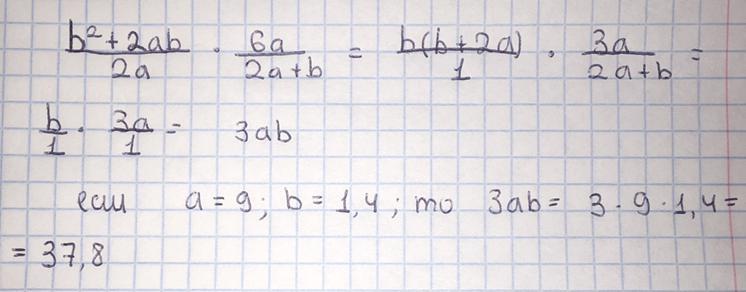 (b² + 2ab)/(2a) · (6a)/(2a+b) = (b(b+2a))/1 · (3a)/(2a+b) =
b/1 · 3a/1 = 3ab
если a = 9; b = 1,4; то 3ab = 3 · 9 · 1,4 =
= 37,8